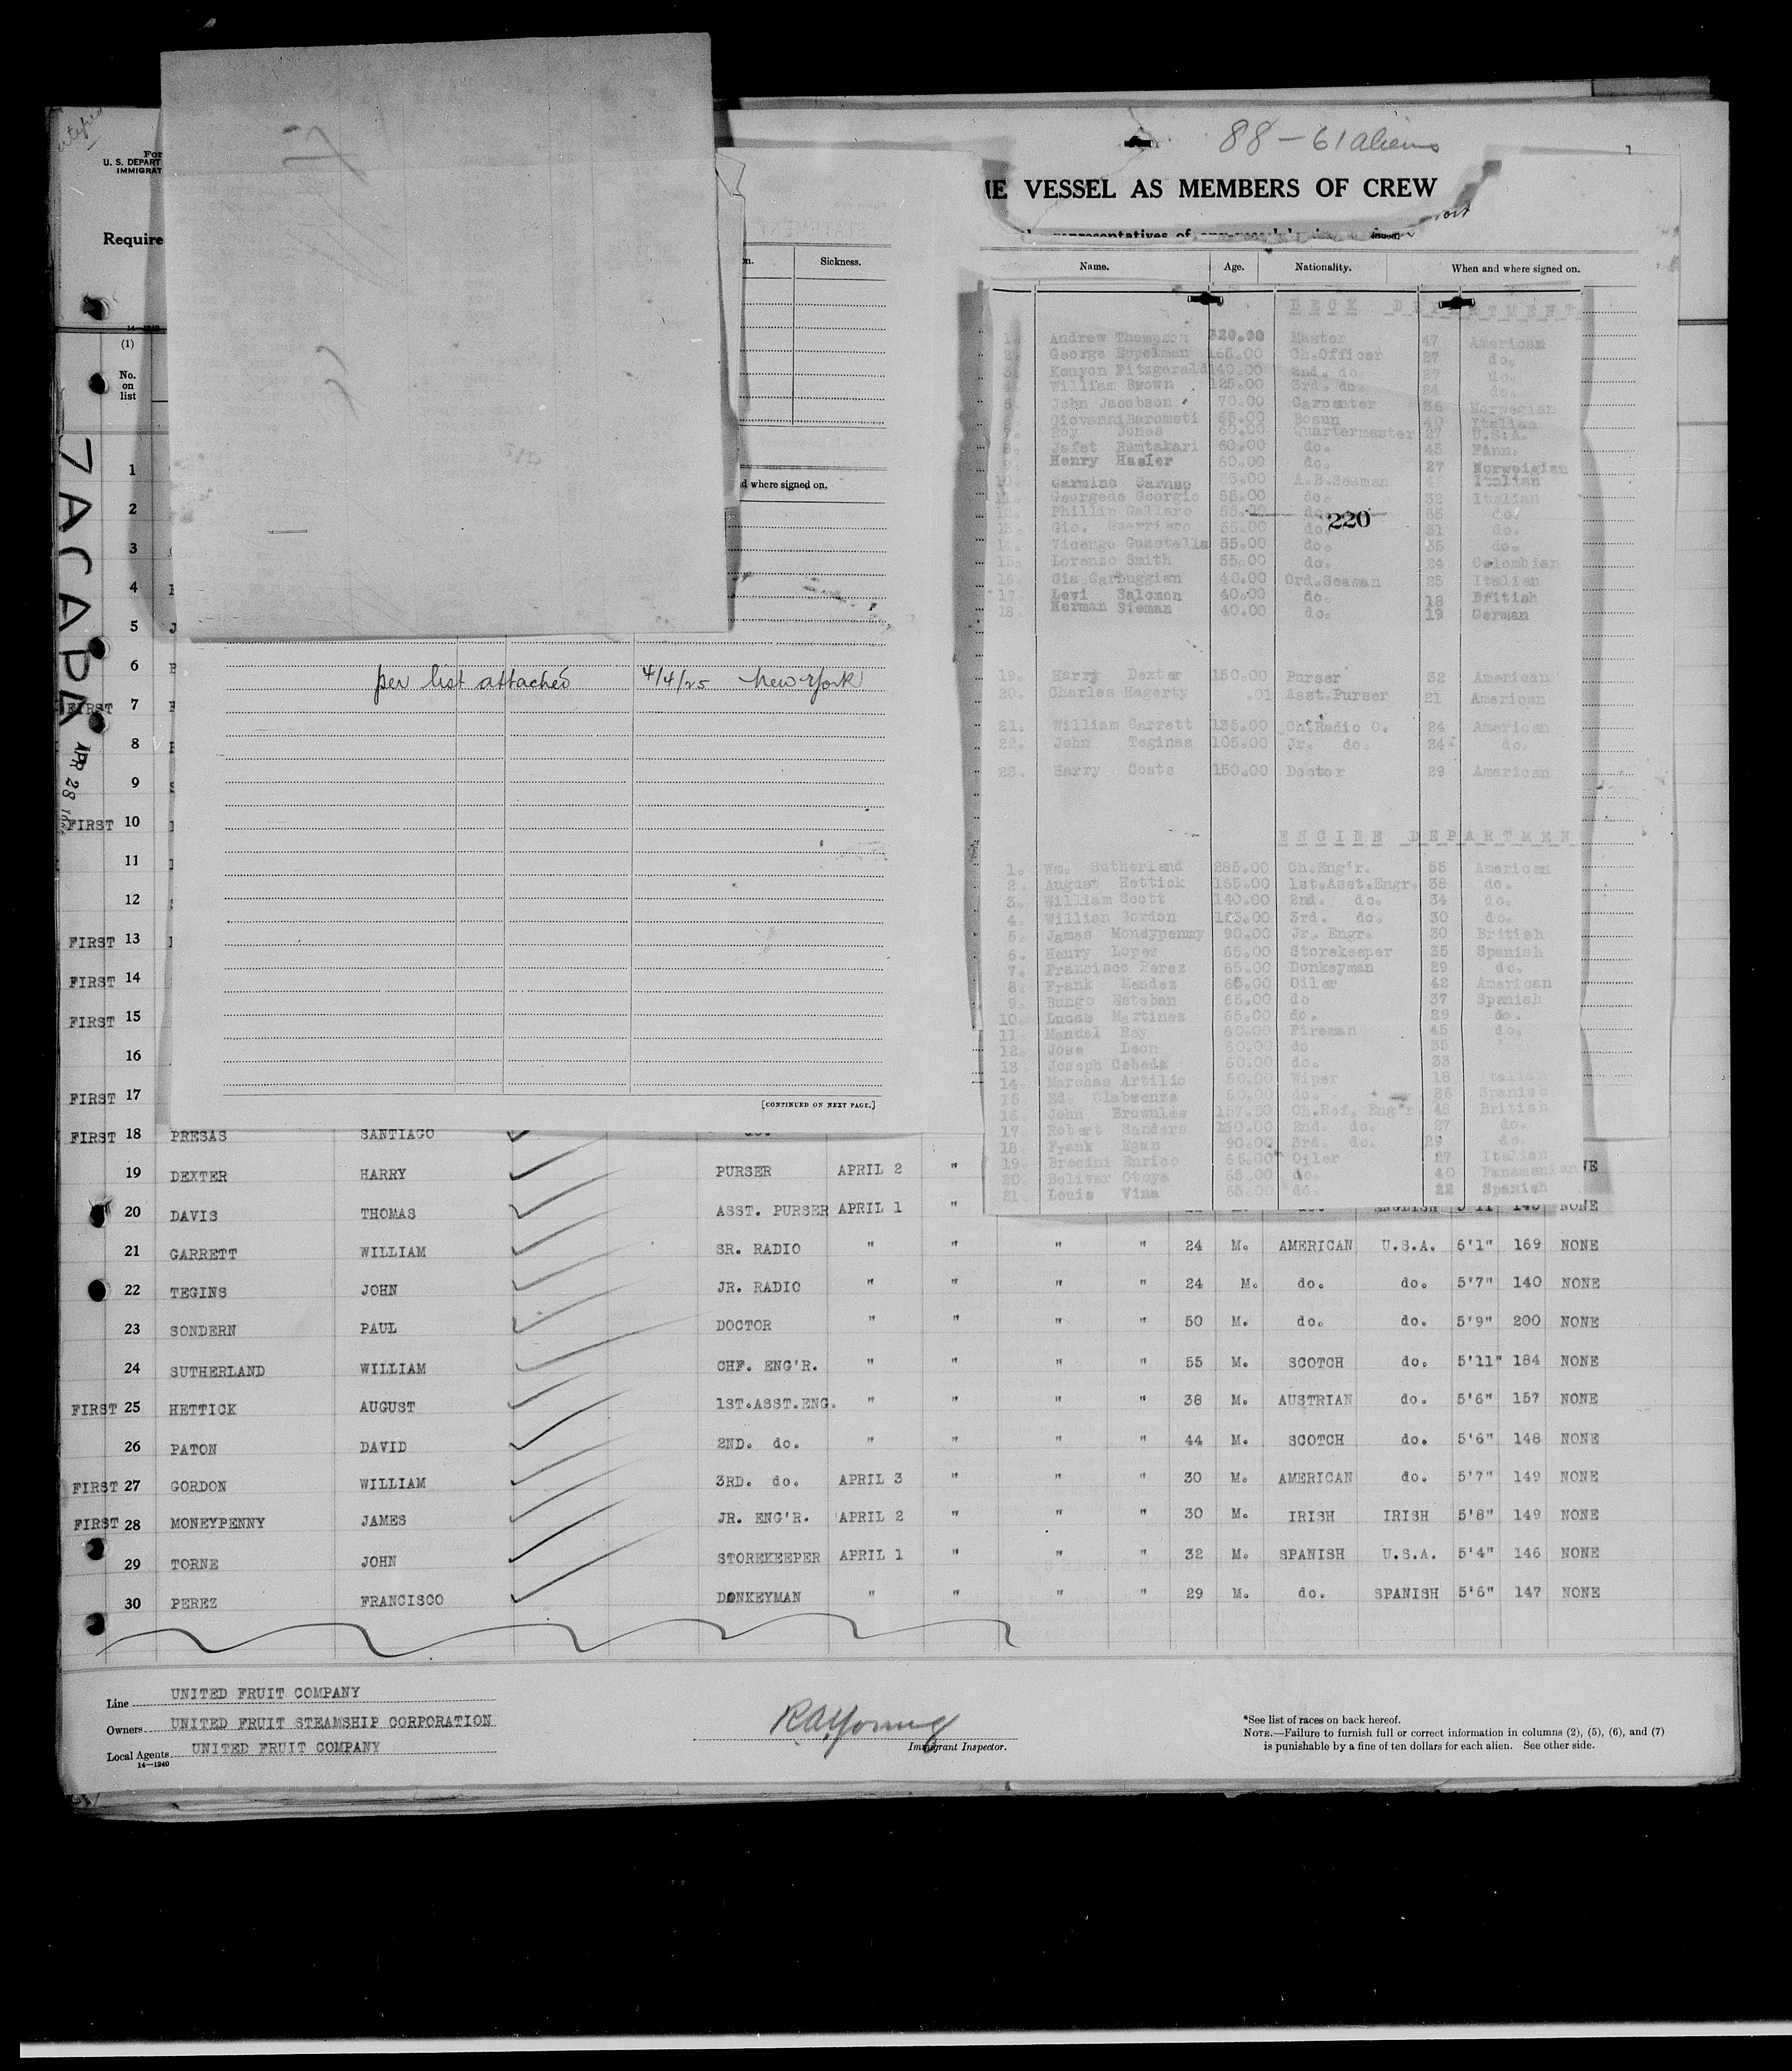 88 - 61 aliens
VESSEL AS MEMBERS OF CREW
For
U. S. DEPART
IMMIGRAT
Require
14—1240
(1)
No.
on
list
ZACAPA
APR 28
Sickness.
d where signed on.
per list attached 4/4/25 New York
[CONTINUED ON NEXT PAGE.]
Name. Age. Nationality. When and where signed on.
DECK DEPARTMENT
1. Andrew Thompson Master 47 American
2. George Eppelman 165.00 Ch.Officer 27 do.
3. Konyon Fitzgerald 140.00 2nd. do. 27 do.
4. William Brown 125.00 3rd. do. 24 do.
5. John Jacobson 70.00 Carpenter 36 Norwegian
6. Giovanni Barometi 65.00 Bosun 40 Italian
7. Roy Jones 60.00 Quartermaster 27 U.S.A.
8. Jafet Remtakari 60.00 do. 45 Finn.
9. Henry Hasler 60.00 do. 27 Norweigian
10. Carmine 55.00 A.B.Seaman Italian
11. Georgede Georgio 55.00 do. 32 Italian
12. Phillip Gallaro 55.00 do. 55 do.
13. Gio. Guerriero 55.00 do. 31 do.
220
14. Vicengo Guastella 55.00 do. 35 do.
15. Loranzo Smith 55.00 do. 24 Colombian
16. Gia.Carbuggian 40.00 Ord.Seaman 25 Italian
17. Levi Salomon 40.00 do. 18 British
18. Herman Sieman 40.00 do. 19 German
19. Harry Dexter 150.00 Purser 32 American
20. Charles Hagerty .01 Asst.Purser 21 American
21. William Garrett 135.00 Ch.Radio O. 24 American
22. John Teginas 105.00 Jr. do. 24 do.
23. Harry Coats 150.00 Doctor 29 American
ENGINE DEPARTMEN
1. Wm. Sutherland 285.00 Ch.Eng'r. 55 American
2. August Hettick 165.00 1st.Asst.Engr. 38 do.
3. William Scott 140.00 2nd. do. 34 do.
4. William Gordon 125.00 3rd. do. 30 do.
5. James Moneypenny 90.00 Jr. Engr. 30 British
6. Henry Lopez 65.00 Storekeeper 35 Spanish
7. Francisco Perez 65.00 Donkeyman 29 do.
8. Frank Mendez 65.00 Oiler 42 American
9. Bungo Esteban 65.00 do 37 Spanish
10. Lucas Martinez 65.00 do. 29 do.
11. Manual Rey 60.00 Fireman 45 do.
12. Jose Leon 60.00 do 35
13 Joseph Cebada 60.00 do. 33
14. Marchas Artilio 50.00 Wiper 18 Italian
15. Ed. Olabuenza 50.00 do. 26 Spanish
16. John Brownlee 157.50 Ch.Ref. Eng'r. 48 British
17. Robert Sanders 130.00 2nd. do. 27 do.
18. Frank Egan 90.00 3rd. do. 29 do.
19. Brocini Enrico 65.00 Oiler 27 Italian
20. Bolivar Otoya 65.00 do. 40 Panamanian
21. Louis Vima 65.00 do. 22 Spanish
1
2
3
4
5
6
FIRST 7
8
9
FIRST 10
11
12
FIRST 13
FIRST 14
FIRST 15
16
FIRST 17
FIRST 18 PRESAS SANTIAGO do.
19 DEXTER HARRY PURSER APRIL 2 "
20 DAVIS THOMAS ASST. PURSER APRIL 1 " ENGLISH 5'11" 145 NONE
21 GARRETT WILLIAM SR. RADIO " " " " 24 M. AMERICAN U.S.A. 6'1" 169 NONE
22 TEGINS JOHN JR. RADIO " " " " 24 M. do. do. 5'7" 140 NONE
23 SONDERN PAUL DOCTOR " " " " 50 M. do. do. 5'9" 200 NONE
24 SUTHERLAND WILLIAM CHF. ENG'R. " " " " 55 M. SCOTCH do. 5'11" 184 NONE
FIRST 25 HETTICK AUGUST 1ST.ASST.ENG. " " " " 38 M. AUSTRIAN do. 5'6" 157 NONE
26 PATON DAVID 2ND. do. " " " " 44 M. SCOTCH do. 5'6" 148 NONE
FIRST 27 GORDON WILLIAM 3RD. do. APRIL 3 " " " 30 M. AMERICAN do. 5'7" 149 NONE
FIRST 28 MONEYPENNY JAMES JR. ENG'R. APRIL 2 " " " 30 M. IRISH IRISH 5'8" 149 NONE
29 TORNE JOHN STOREKEEPER APRIL 1 " " " 32 M. SPANISH U.S.A. 5'4" 146 NONE
30 PEREZ FRANCISCO DONKEYMAN " " " " 29 M. do. SPANISH 5'6" 147 NONE
Line UNITED FRUIT COMPANY
Owners UNITED FRUIT STEAMSHIP CORPORATION
Local Agents UNITED FRUIT COMPANY
14—1240
RAYoung
Immigrant Inspector.
*See list of races on back hereof.
NOTE.—Failure to furnish full or correct information in columns (2), (5), (6), and (7)
is punishable by a fine of ten dollars for each alien. See other side.